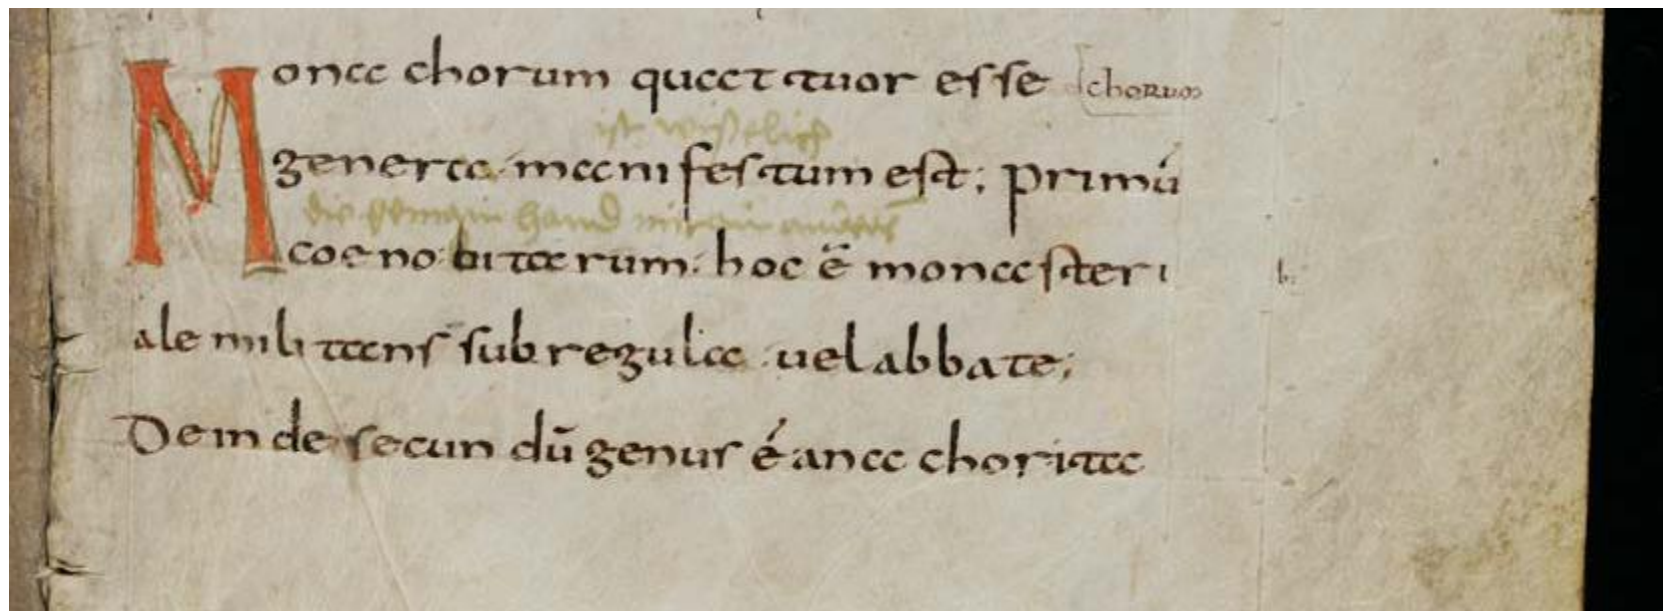 Monachorum quattuor esse chorum
ist wißelich
genera manifestum est; primū
die gemain hand
coenobitarum. hoc ē monasteri
ale militans sub regula uel abbate;
Deinde secundū genus é anachorita